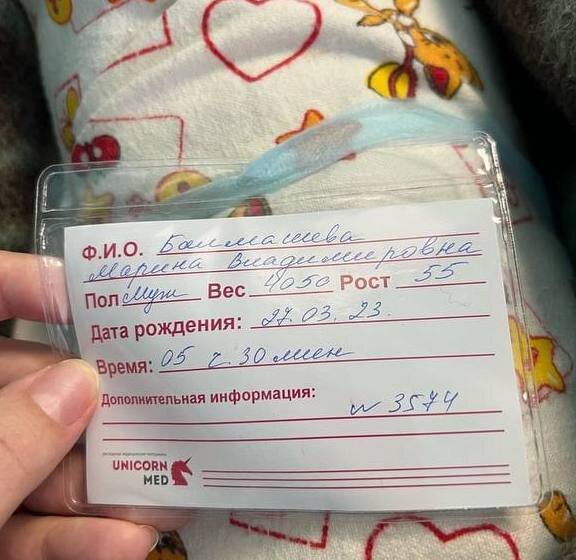 Ф.И.О. Балмашева
Марина Владимировна
Пол Муж Вес 4050 Рост 55
Дата рождения: 27.03.23.
Время: 05 ч. 30 мин
Дополнительная информация:
№ 3574
расходные медицинские материалы
UNICORN
MED